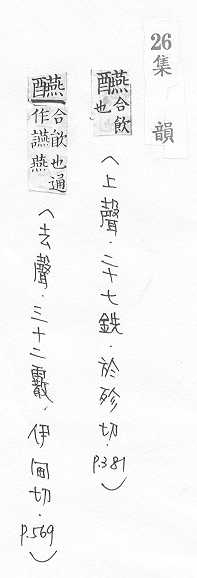 26
集韻
醼合飲也
(上聲.二十七銑.於殄切.P.381)
醼合飲也通作讌燕
(去聲.三十二霰.伊甸切.P.569)